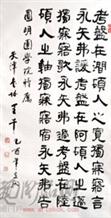 考盤在澗碩人之寬獨寐寤言
永矢弗諼考盤在阿碩人之薖
獨寐寤歌永矢弗過考盤在陸
碩人之軸獨寐寤宿永矢弗告
圓明園學院
天津